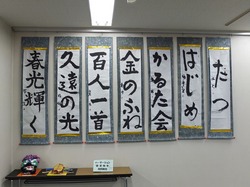 たつ
はじめ
かるた会
金のふね
百人一首
久遠の光
春光輝く